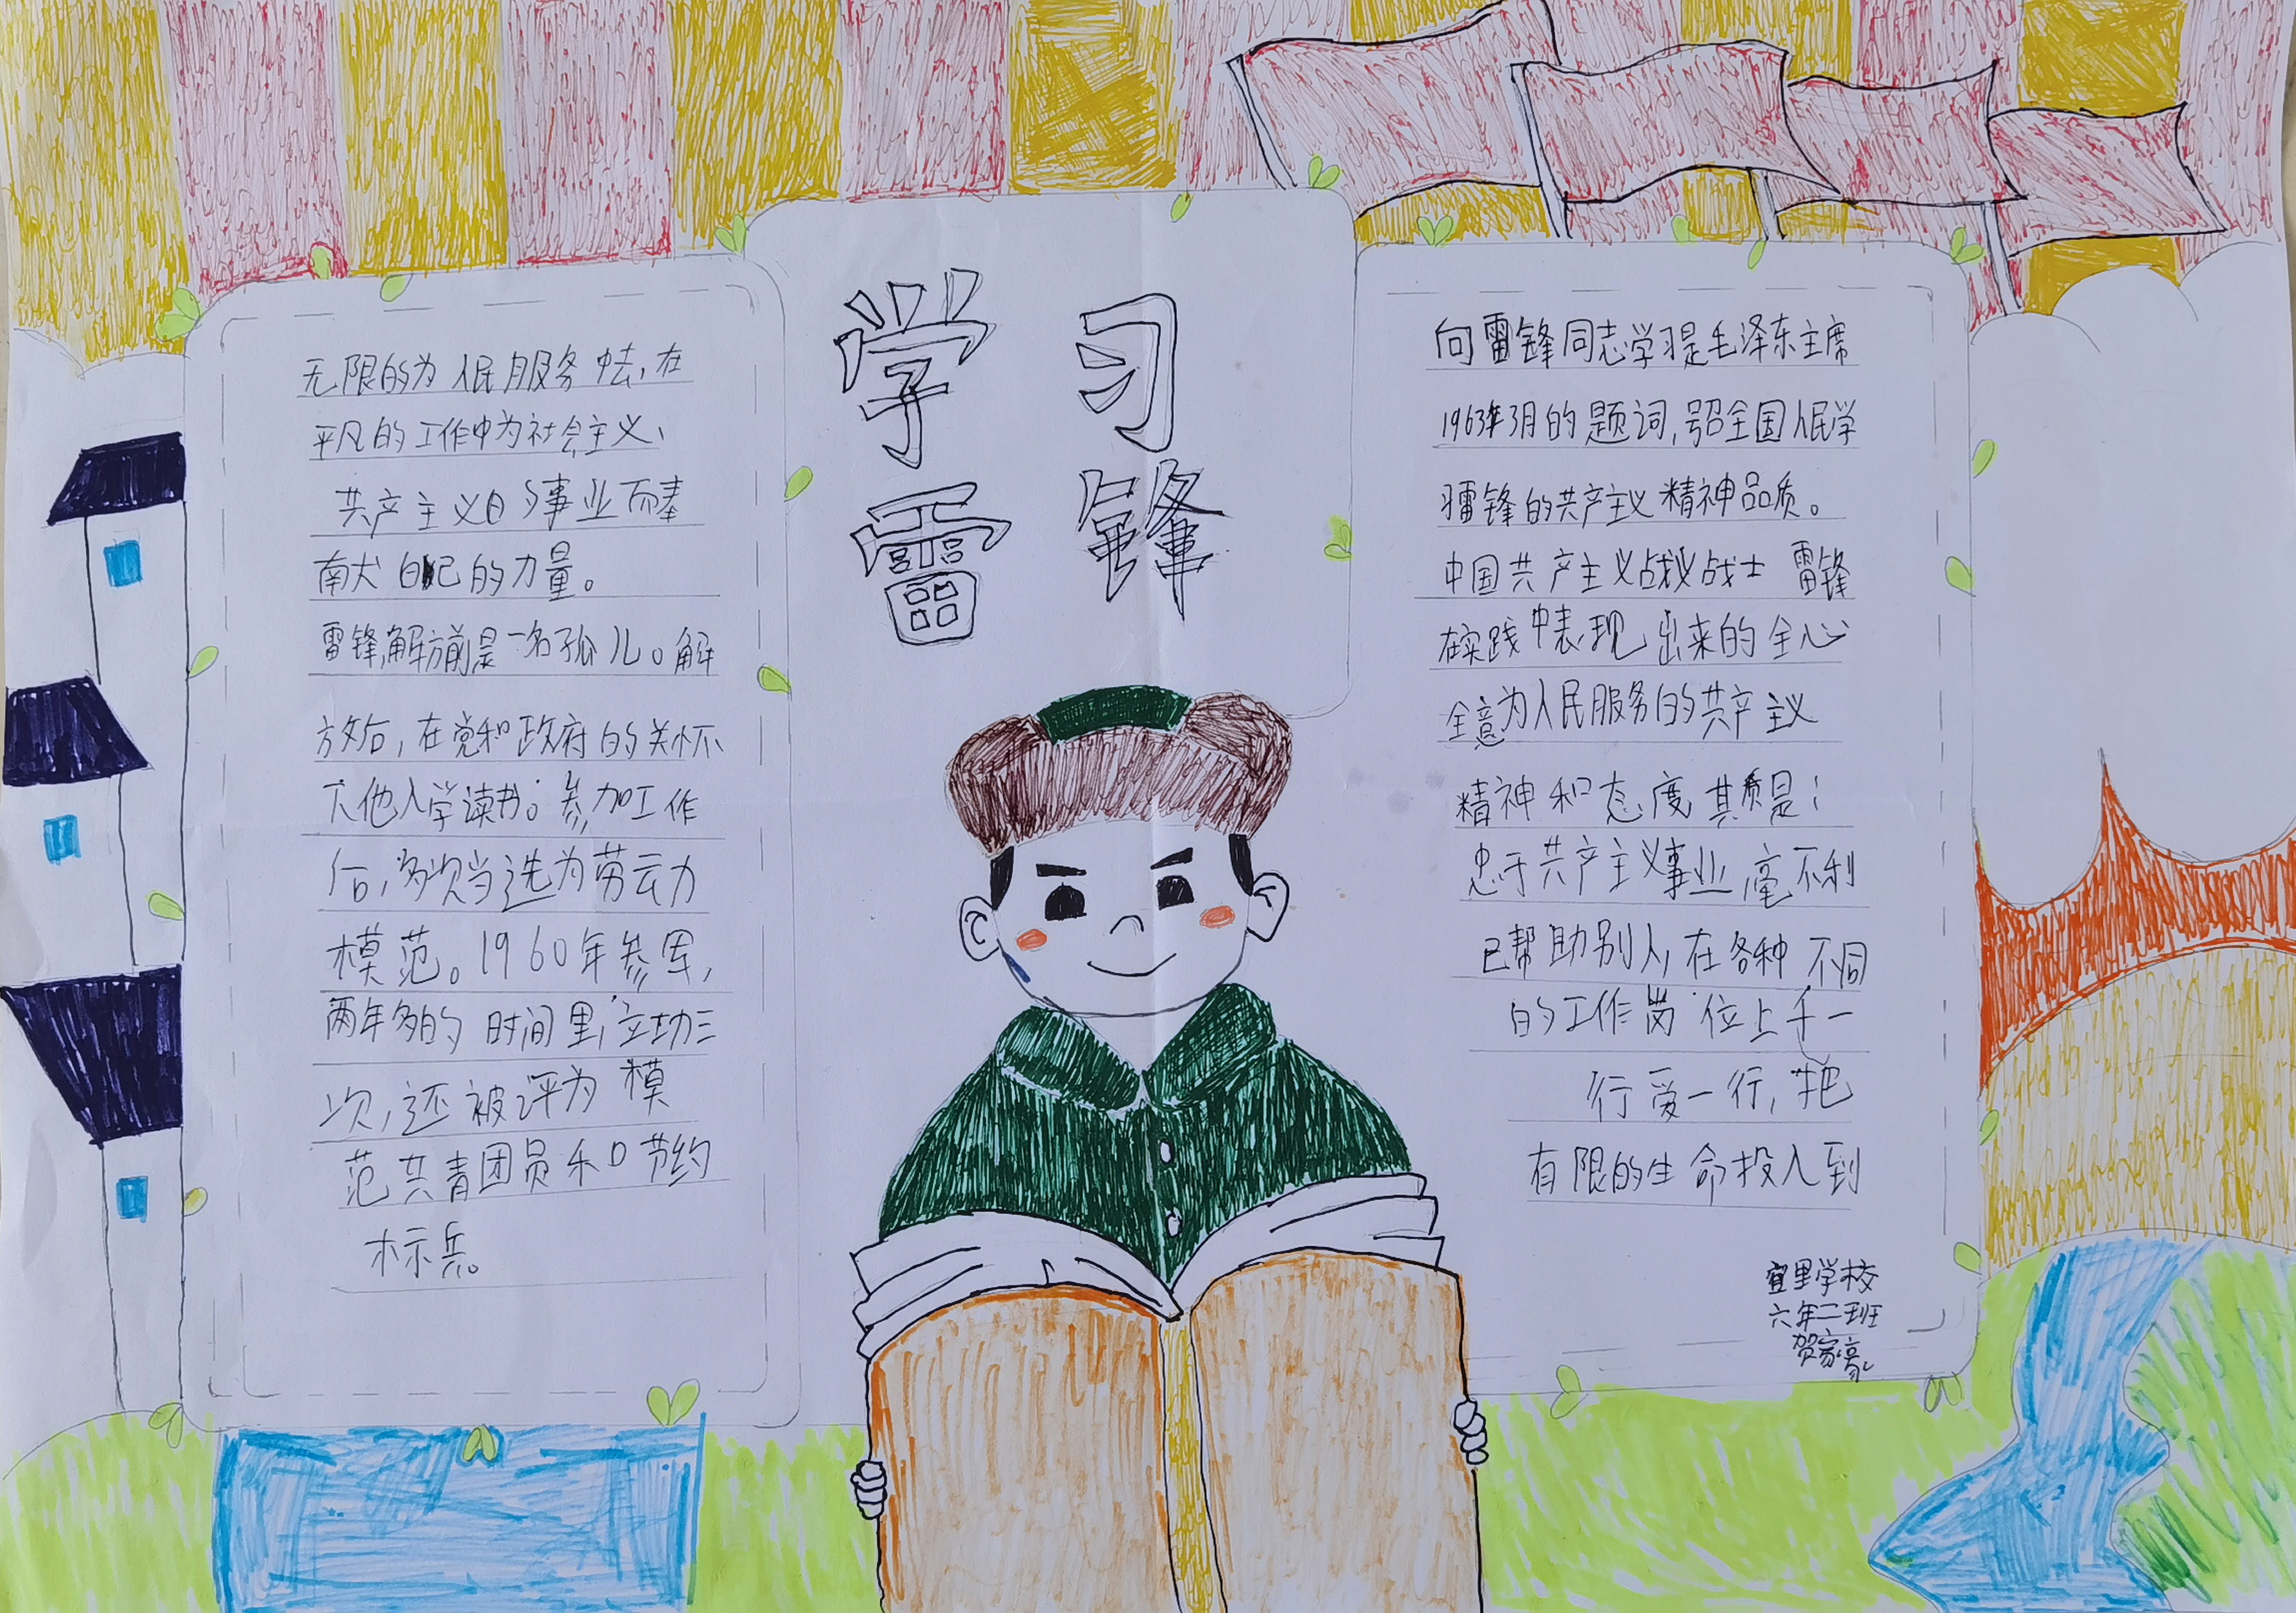 学习
雷锋
无限的为人民服务中去,在
平凡的工作中为社会主义、
共产主义的事业而奉
献自己的力量。
雷锋,解放前是一名孤儿。解
放后,在党和政府的关怀
下他入学读书。参加工作
后,多次当选为劳动力
模范。1960年参军,
两年多的时间里,立功三
次,还被评为模
范共青团员和节约
标兵。
向雷锋同志学习是毛泽东主席
1963年3月的题词,号召全国人民学
习雷锋的共产主义精神品质。
中国共产主义战义战士 雷锋
在实践中表现出来的全心
全意为人民服务的共产主义
精神和态度其质是:
忠于共产主义事业,毫不利
已帮助别人,在各种不同
的工作岗位上千一
行爱一行,把
有限的生命投入到
宜里学校
六年二班
贺家豪